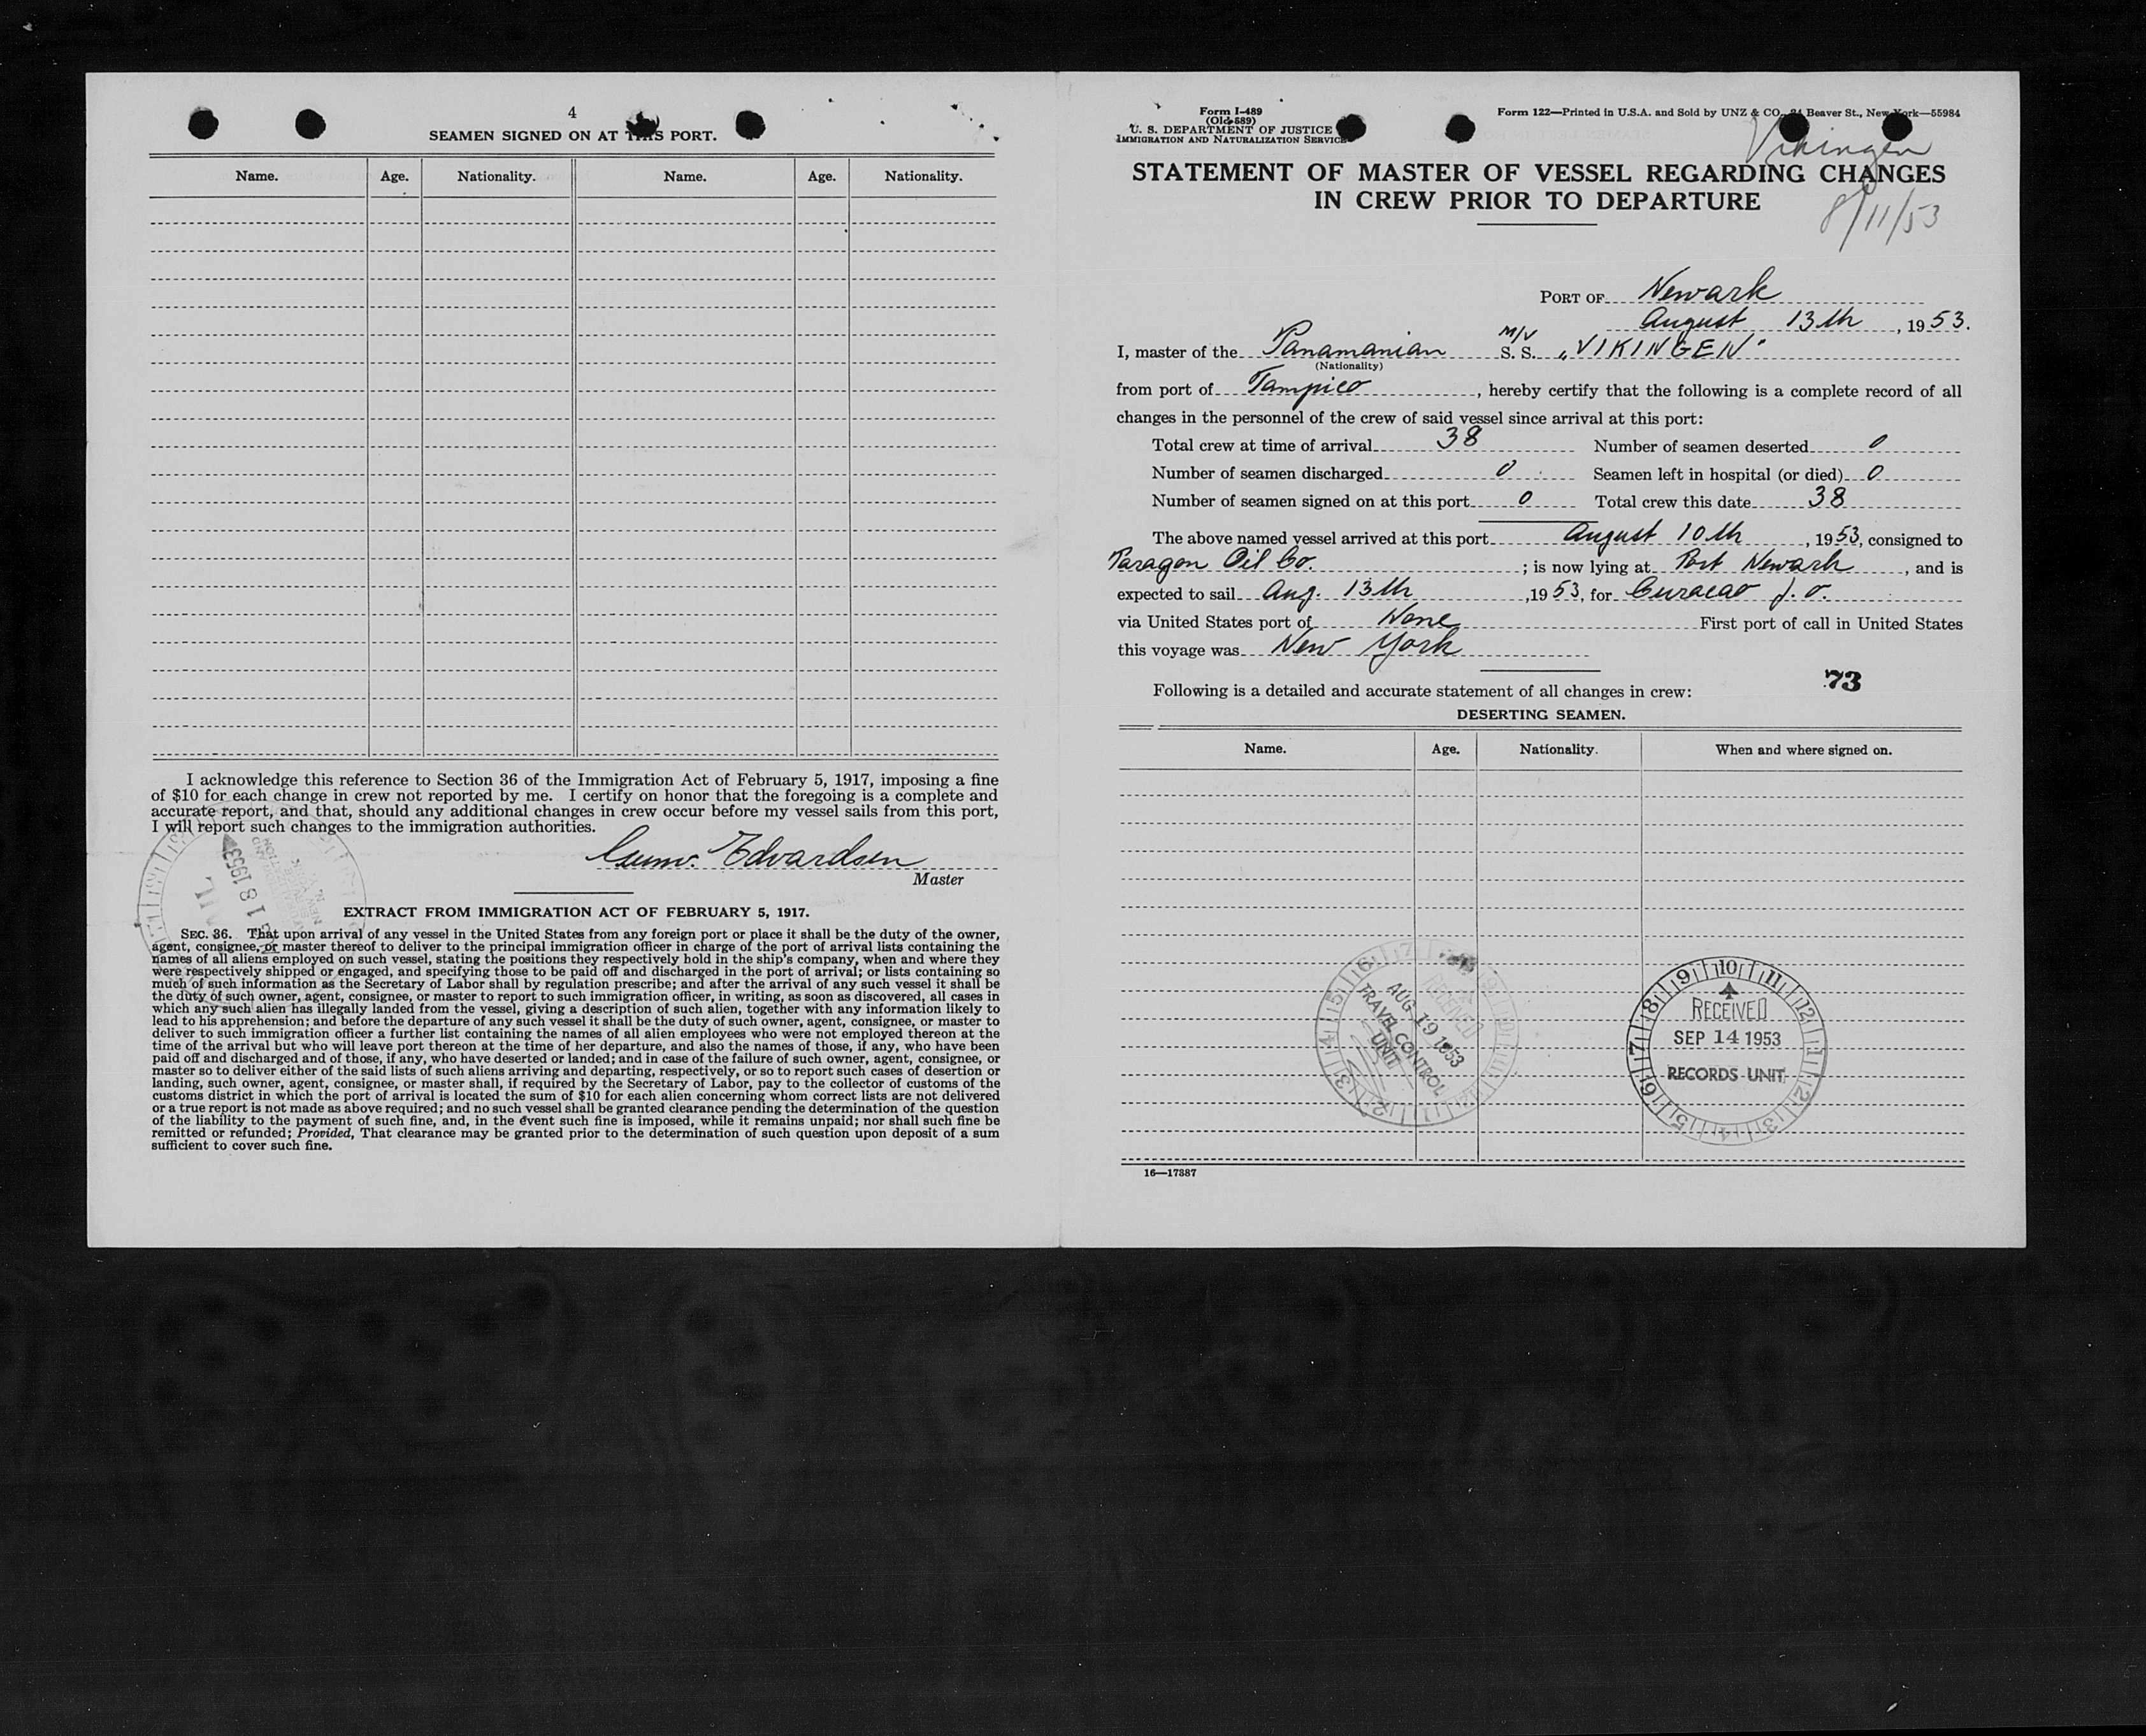 4
SEAMEN SIGNED ON AT THIS PORT.
Name. Age. Nationality. Name. Age. Nationality.
I acknowledge this reference to Section 36 of the Immigration Act of February 5, 1917, imposing a fine
of $10 for each change in crew not reported by me. I certify on honor that the foregoing is a complete and
accurate report, and that, should any additional changes in crew occur before my vessel sails from this port,
I will report such changes to the immigration authorities.
Edvardsen
Master
EXTRACT FROM IMMIGRATION ACT OF FEBRUARY 5, 1917.
SEC. 36. That upon arrival of any vessel in the United States from any foreign port or place it shall be the duty of the owner,
agent, consignee, or master thereof to deliver to the principal immigration officer in charge of the port of arrival lists containing the
names of all aliens employed on such vessel, stating the positions they respectively hold in the ship's company, when and where they
were respectively shipped or engaged, and specifying those to be paid off and discharged in the port of arrival; or lists containing so
much of such information as the Secretary of Labor shall by regulation prescribe; and after the arrival of any such vessel it shall be
the duty of such owner, agent, consignee, or master to report to such immigration officer, in writing, as soon as discovered, all cases in
which any such alien has illegally landed from the vessel, giving a description of such alien, together with any information likely to
lead to his apprehension; and before the departure of any such vessel it shall be the duty of such owner, agent, consignee, or master to
deliver to such immigration officer a further list containing the names of all alien employees who were not employed thereon at the
time of the arrival but who will leave port thereon at the time of her departure, and also the names of those, if any, who have been
paid off and discharged and of those, if any, who have deserted or landed; and in case of the failure of such owner, agent, consignee, or
master so to deliver either of the said lists of such aliens arriving and departing, respectively, or so to report such cases of desertion or
landing, such owner, agent, consignee, or master shall, if required by the Secretary of Labor, pay to the collector of customs of the
customs district in which the port of arrival is located the sum of $10 for each alien concerning whom correct lists are not delivered
or a true report is not made as above required; and no such vessel shall be granted clearance pending the determination of the question
of the liability to the payment of such fine, and, in the event such fine is imposed, while it remains unpaid; nor shall such fine be
remitted or refunded; Provided, That clearance may be granted prior to the determination of such question upon deposit of a sum
sufficient to cover such fine.
Form I-489
(Old 689)
U. S. DEPARTMENT OF JUSTICE
IMMIGRATION AND NATURALIZATION SERVICE
Form 122—Printed in U.S.A. and Sold by UNZ & CO., Beaver St., New York—55984
Vikingen
STATEMENT OF MASTER OF VESSEL REGARDING CHANGES
IN CREW PRIOR TO DEPARTURE
8/11/53
PORT OF Newark
August 13th, 1953.
I, master of the Panamanian M/V S. S. „VIKINGEN"
(Nationality)
from port of Tampico, hereby certify that the following is a complete record of all
changes in the personnel of the crew of said vessel since arrival at this port:
Total crew at time of arrival 38 Number of seamen deserted 0
Number of seamen discharged 0 Seamen left in hospital (or died) 0
Number of seamen signed on at this port 0 Total crew this date 38
The above named vessel arrived at this port August 10th, 1953, consigned to
Paragon Oil Co. ; is now lying at Port Newark, and is
expected to sail Aug. 13th, 1953, for Curacao f. o.
via United States port of None First port of call in United States
this voyage was New York
73
Following is a detailed and accurate statement of all changes in crew:
DESERTING SEAMEN.
Name. Age. Nationality. When and where signed on.
RECEIVED
AUG 19 1953
TRAVEL CONTROL
UNIT
RECEIVED
SEP 14 1953
RECORDS UNIT
16—17887